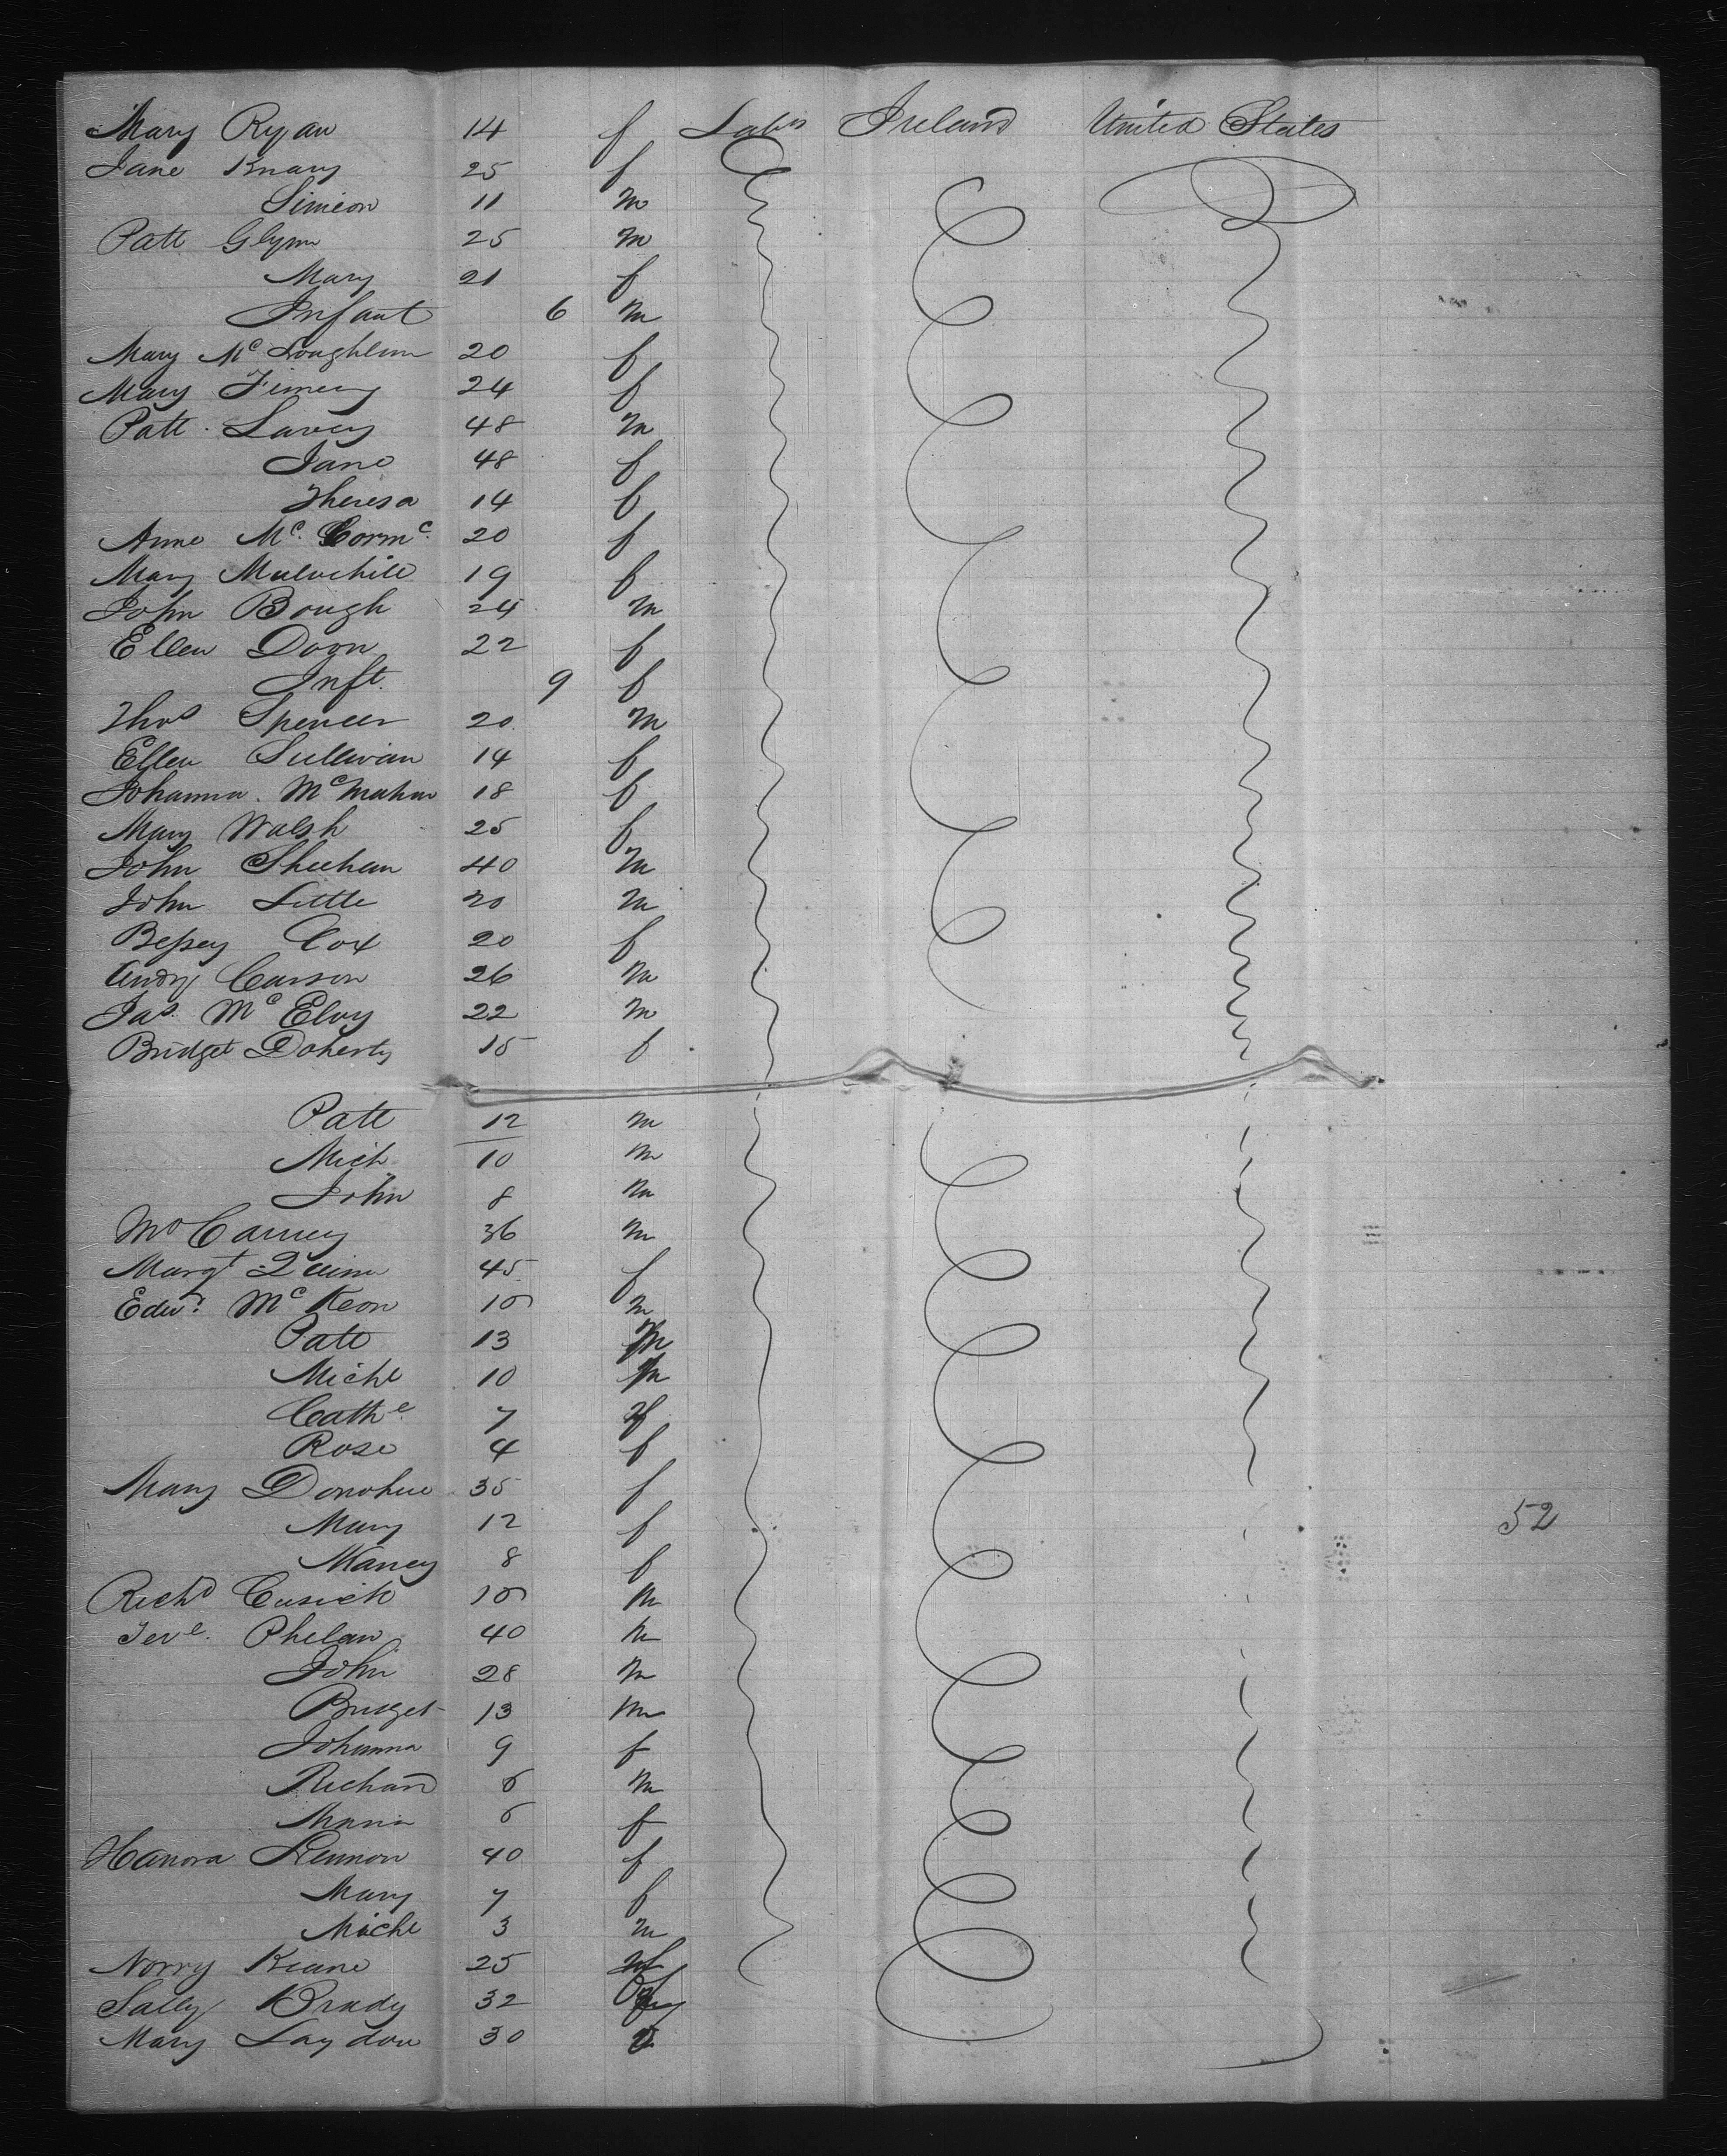 Mary Ryan 14 f Labr Ireland United States
Jane Knary 25 f
Simeon 11 m
Patt Glynn 25 m
Mary 21 f
Infant 6 m
Mary Mc Loughlinn 20 f
Mary Finney 24 f
Patt. Lavey 48 m
Jane 48 f
Theresa 14 f
Anne Mc. Cormc. 20 f
Mary Mulvihill 19 f
John Bough 24 m
Ellen Doon 22 f
Inft. 9 f
Thos Spencer 20 m
Ellen Sullivan 14 f
Johanna. McMahon 18 f
Mary Walsh 25 f
John Sheehan 40 m
John Little 20 m
Bessey Cox 20 f
Andy Carson 26 m
Jas. Mc Elvy 22 m
Bridget Doherty 15 f
Patt 12 m
Mich 10 m
John 8 m
Carney 36 m
Margt Quinn 45 f
Edwd. Mc Keon m
Patt 13 m
Michl 10 m
Cathe. 7 f
Rose 4 f
Mary Donohue 35 f
Mary 12 f
Nancy 8 f 52
Richd Cusick m
Phelan 40 m
John 28 m
Bridget 13 m
Johanna 9 f
Richard 6 m
Maria 6 f
Hanora Lennon 40 f
Mary 7 f
Michl 3 m
Norry Keane 25 f
Sally Brady 32
Mary Laydon 30